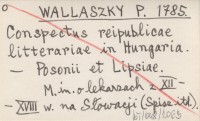 o WALLASZKY P. 1785.
Conspectus reipublicae
litterariae in Hungaria.
— Posonii et Lipsiae.
M. in. o lekarzach z XII -
- XVIII w. na Słowacji (Spisz itd.).